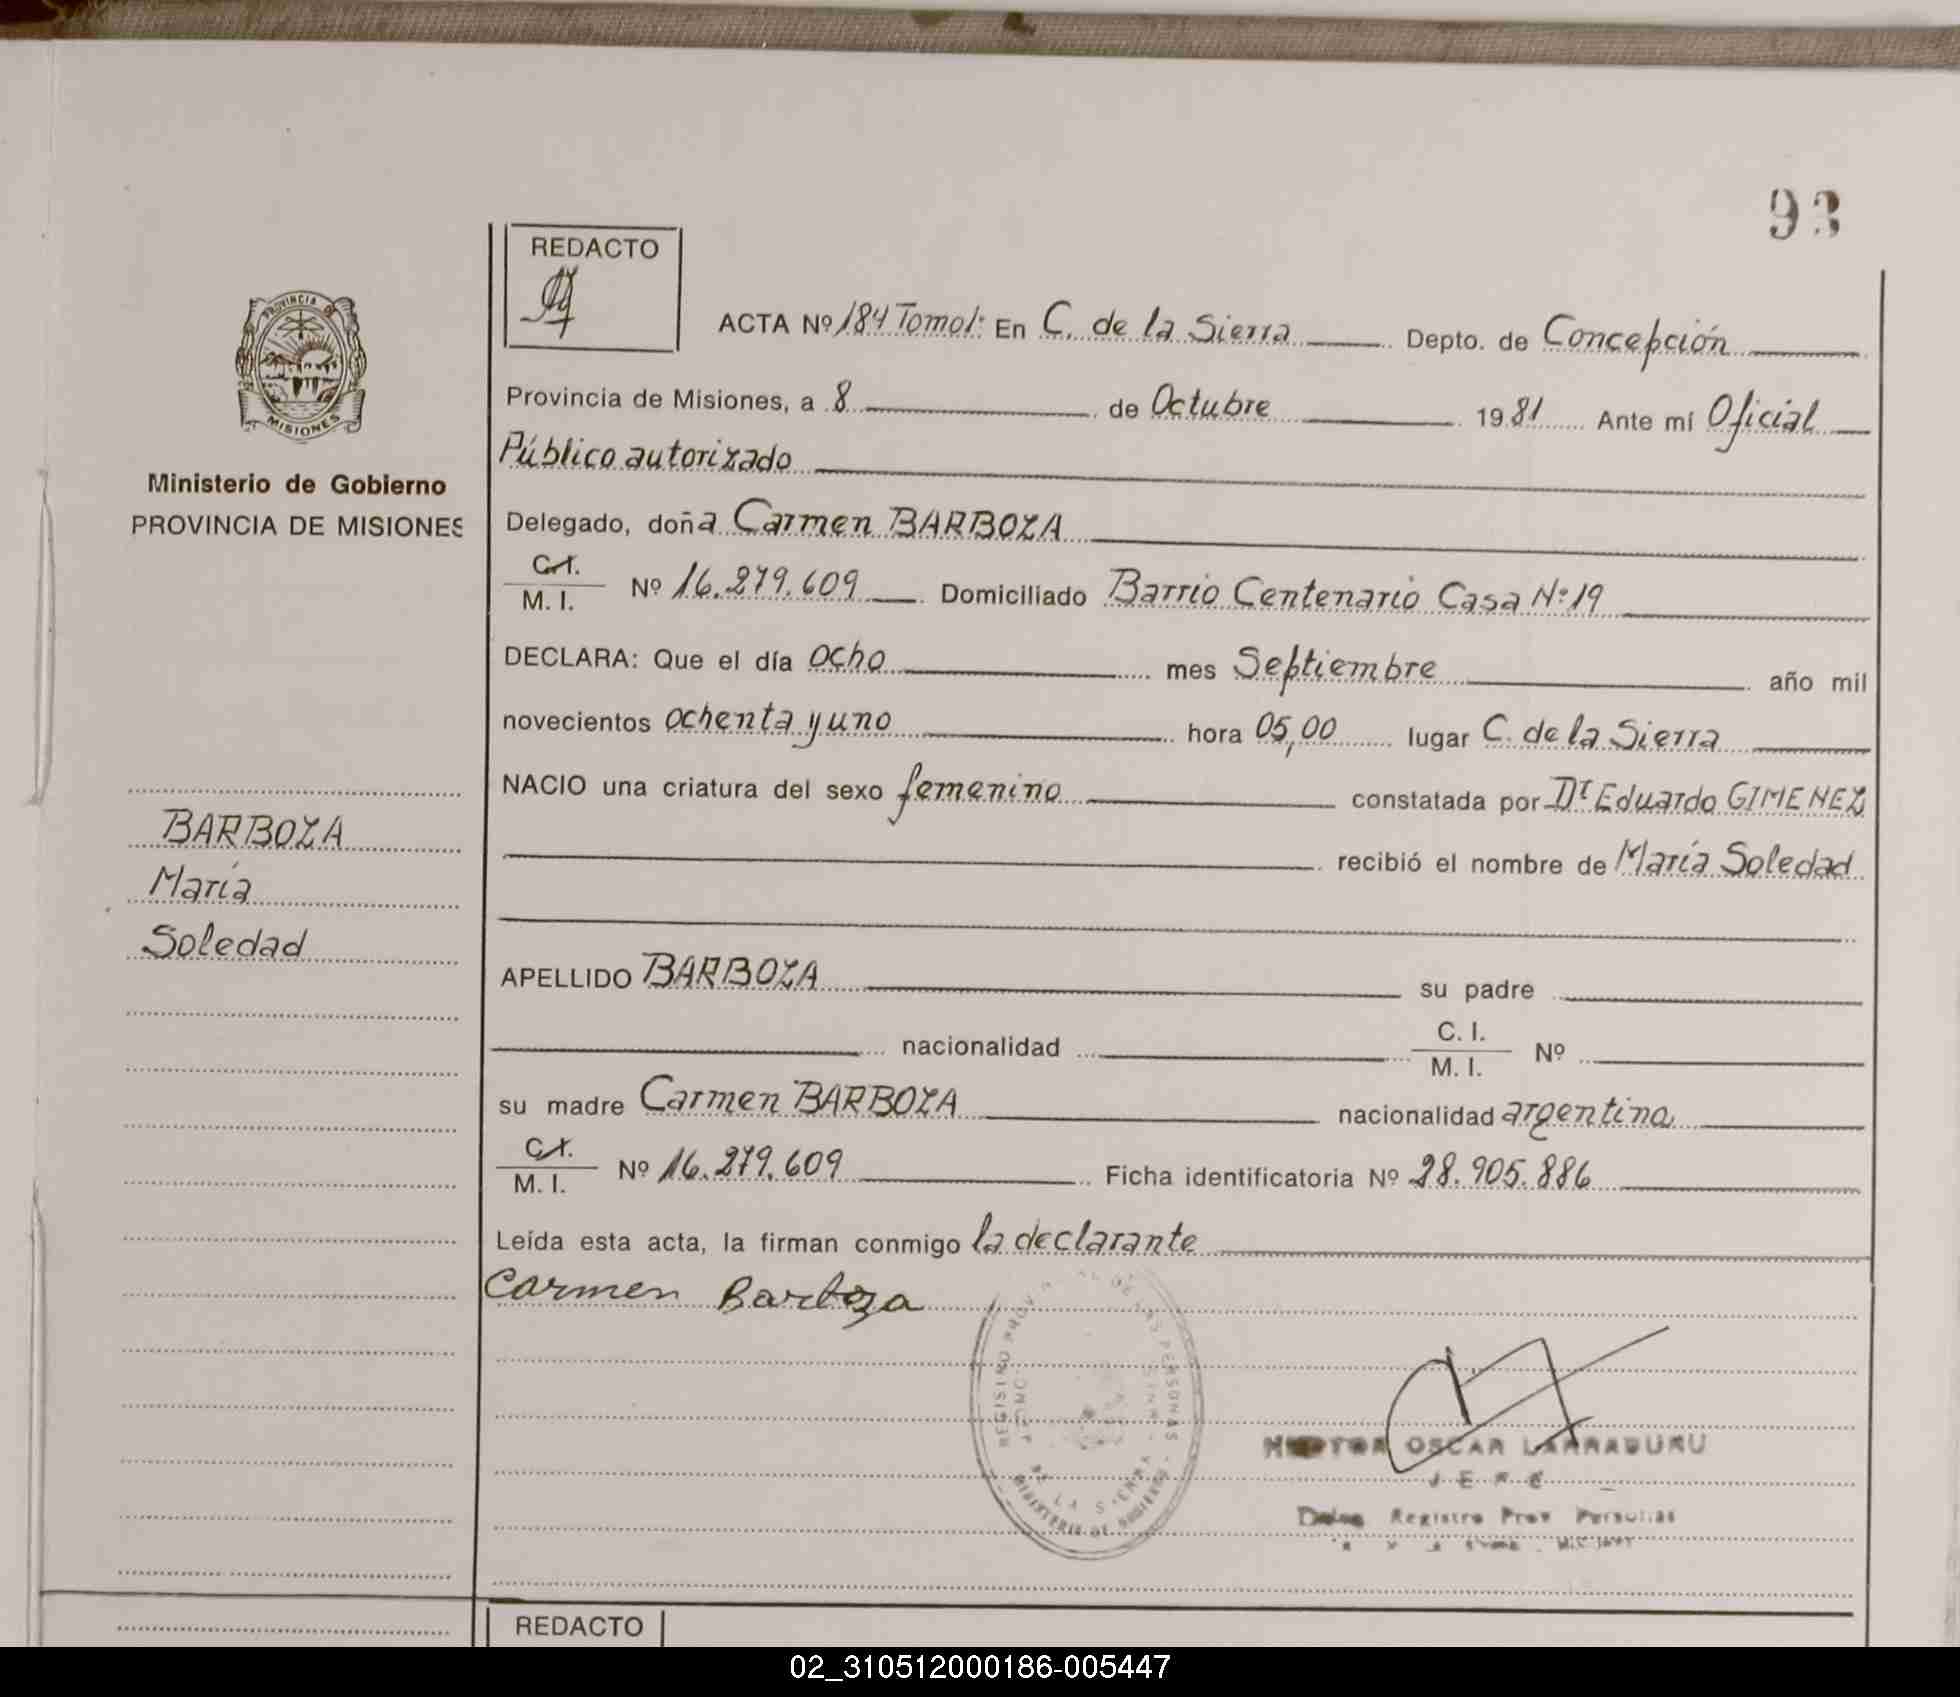 93
REDACTO
PROVINCIA DE
MISIONES
ACTA Nº 184 Tomo1: En C. de la Sierra Depto. de Concepción
Provincia de Misiones, a 8 de Octubre 1981 Ante mí Oficial
Público autorizado
Ministerio de Gobierno
PROVINCIA DE MISIONES
Delegado, doña Carmen BARBOZA
C.I. M. I. Nº 16.279.609 Domiciliado Barrio Centenario Casa Nº 19
DECLARA: Que el día ocho mes Septiembre año mil
novecientos ochenta y uno hora 05,00 lugar C. de la Sierra
NACIO una criatura del sexo femenino constatada por Dr Eduardo GIMENEZ
recibió el nombre de María Soledad
BARBOZA
María
Soledad
APELLIDO BARBOZA su padre
nacionalidad C. I. M. I. Nº
su madre Carmen BARBOZA nacionalidad argentina
C.I. M. I. Nº 16.279.609 Ficha identificatoria Nº 28.905.886
Leída esta acta, la firman conmigo la declarante
Carmen Barboza
REGISTRO PROV DE LAS PERSONAS
LA SIERRA
MINISTERIO DE GOBIERNO
OSCAR LARRABURU
JEFE
Registro Prov Personas
REDACTO
02_310512000186-005447